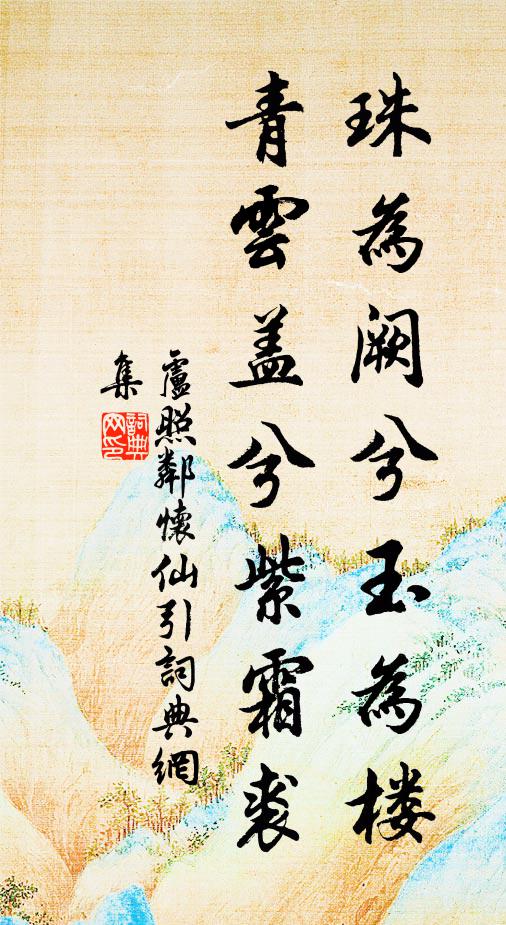 珠為阙兮玉為楼
青雲盖兮紫霜裘
盧照鄰懷仙引詞典網
集
詞典网印